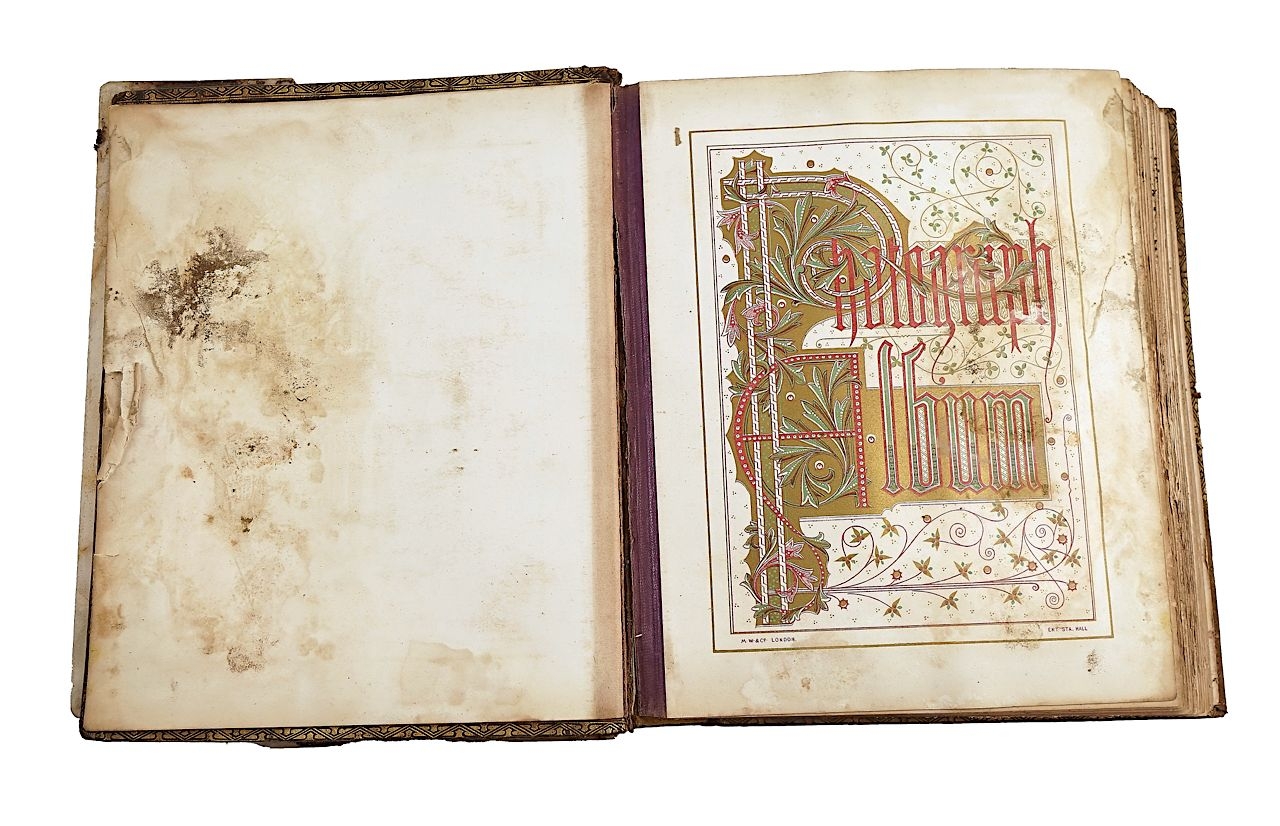 Photograph
Album
M. W. & Co. LONDON.
ENT. STA. HALL